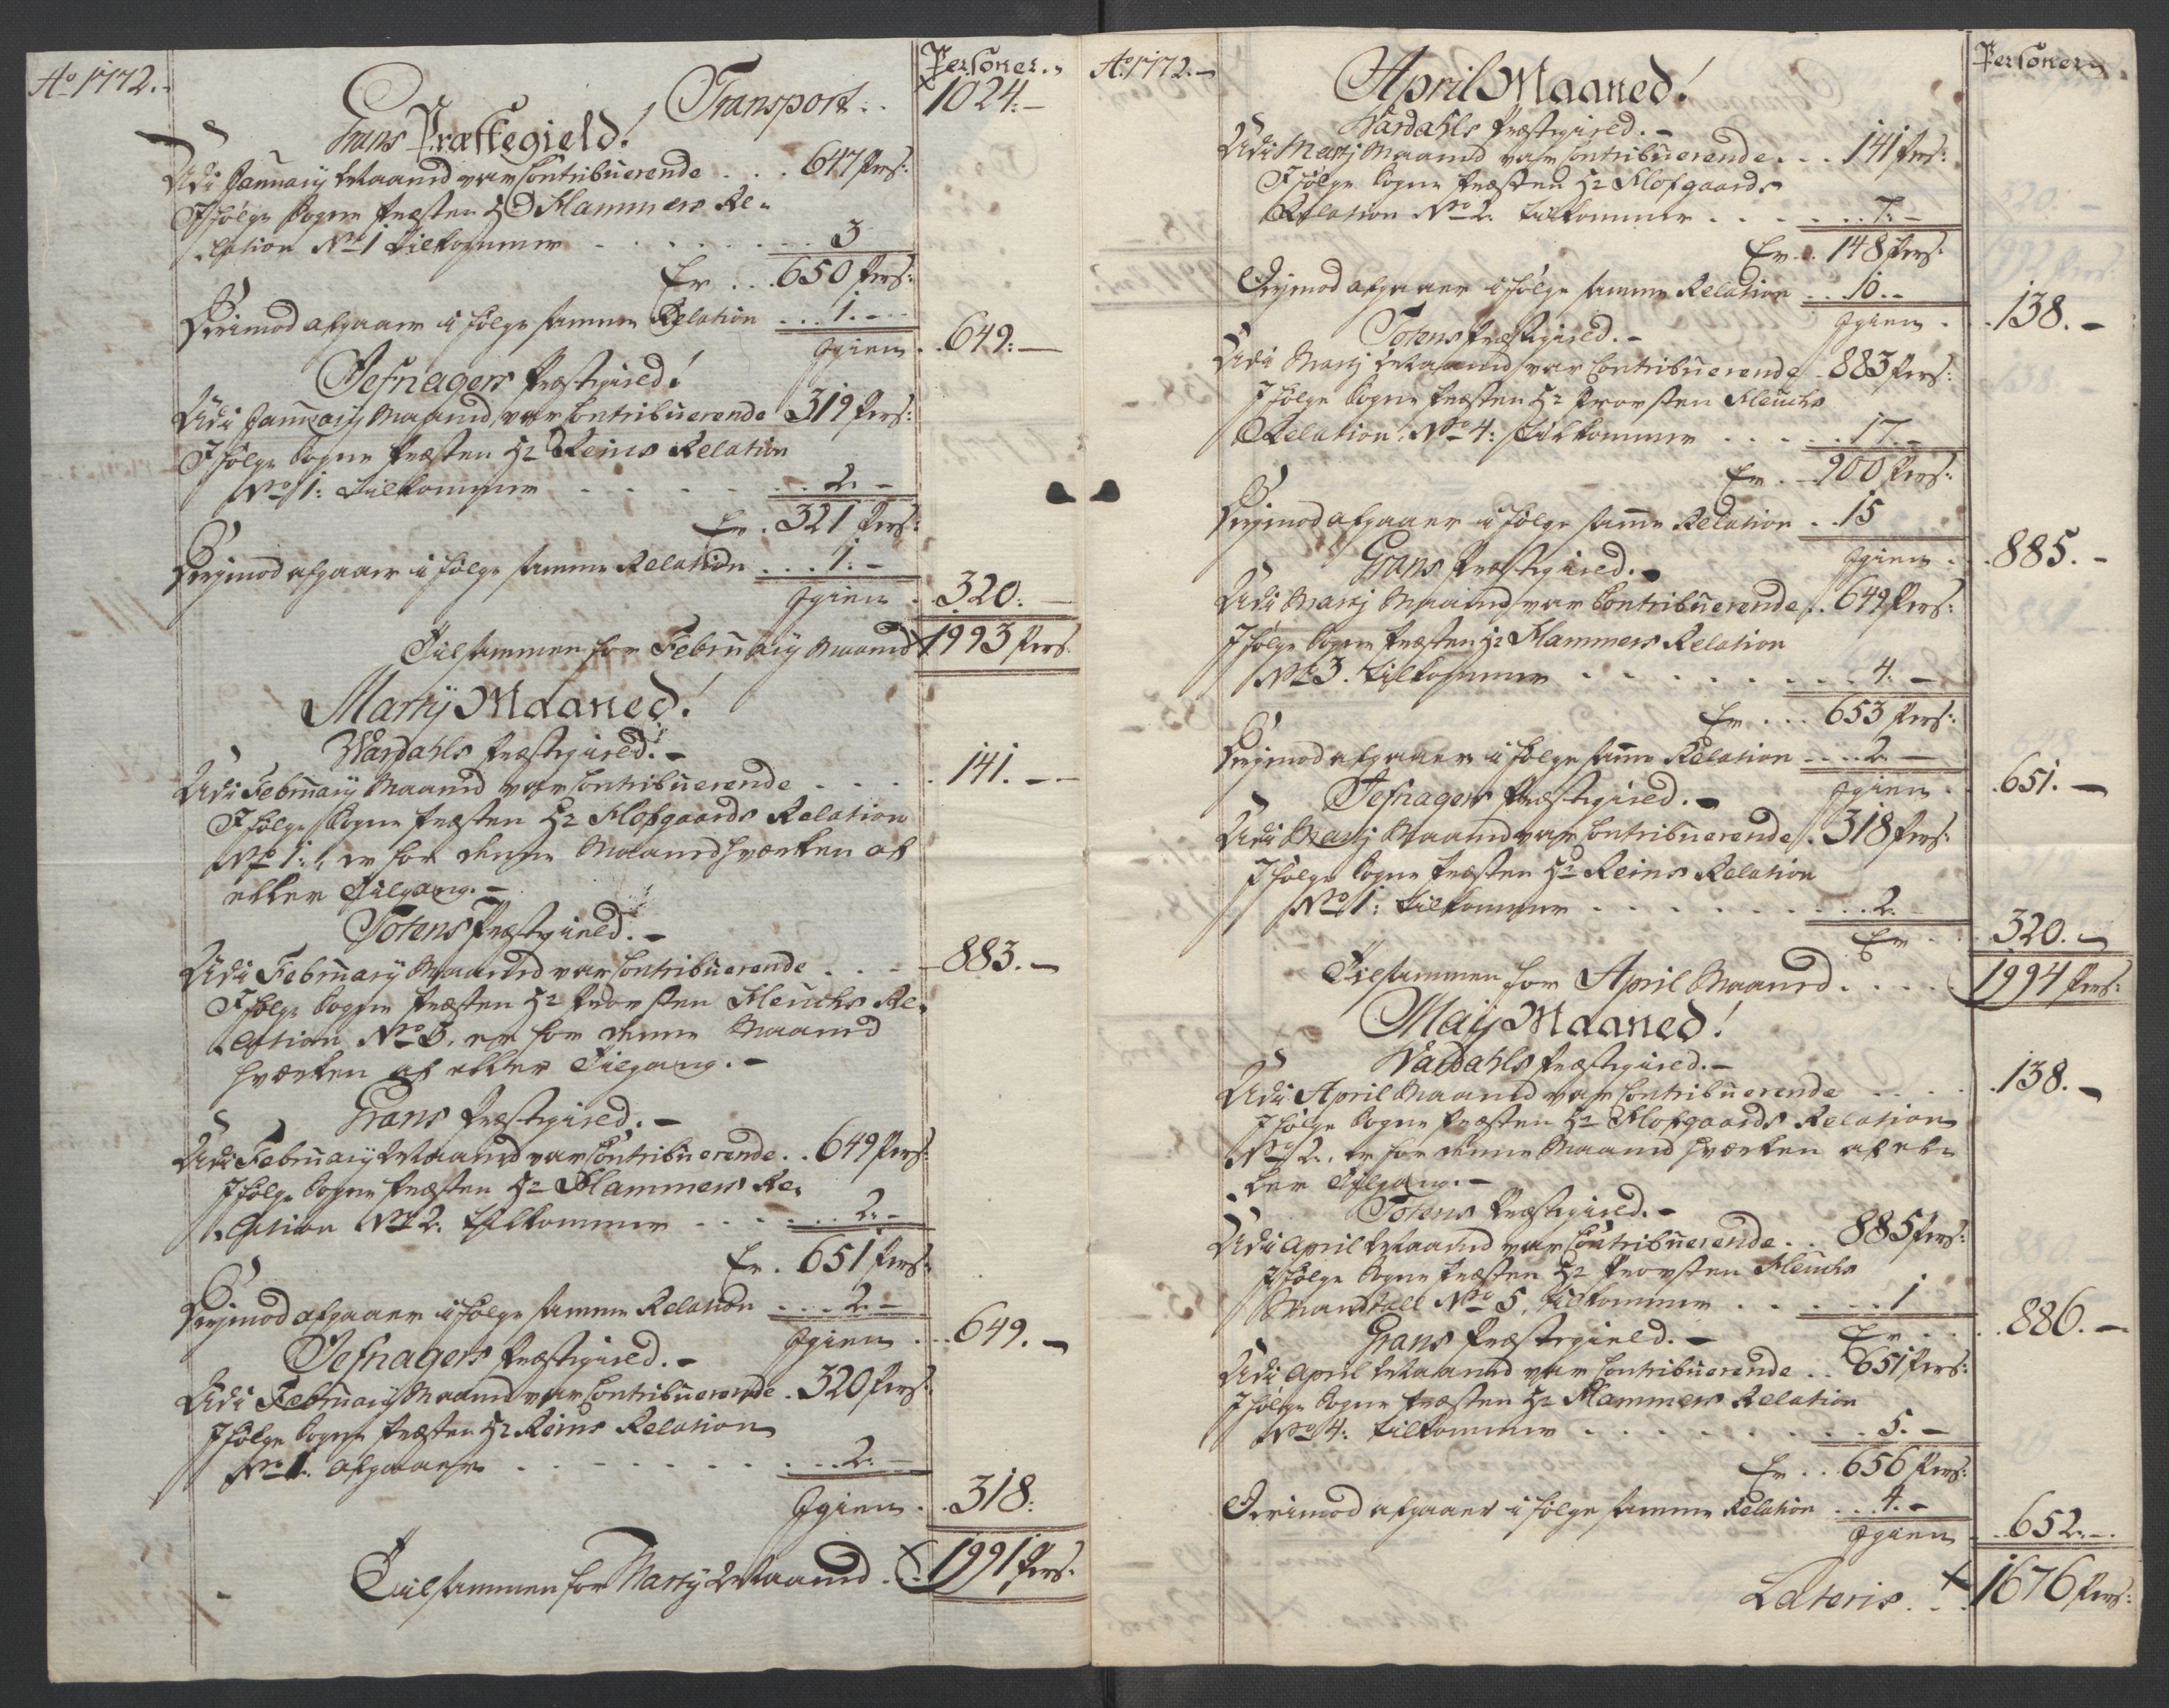 Ao 1772.
Personer.
Transport . . 1024. —
Grans Præstegield!
Udi January Maaned var Contribuerende . . . 647 Pers:
Ifølge Sogne Præsten Hr Hammers Re-
lation No 1 tilkommer . . . 3
Er . . . 650 Pers:
Derimod afgaaer i følge samme Relation . . . 1. —
Igien . . 649. —
Jefnagers Præstegield!
Udi January Maaned var Contribuerende 319 Pers:
Ifølge Sogne Præsten Hr Reins Relation
No 1: tilkommer . . . 2. —
Er . 321 Pers:
Derimod afgaaer i følge samme Relation . . . 1. —
Igien . 320. —
Tilsammen for February Maaned 1993 Pers.
Martij Maaned!
Wardahls Præstegield. —
Udi February Maaned var Contribuerende . . . 141. —
Ifølge Sogne Præsten Hr Hofgaards Relation
No 1:, er for denne Maaned hverken af
eller Tilgang. —
Totens Præstegield. —
Udi February Maaned var Contribuerende . . . 883. —
Ifølge Sogne Præsten Hr Provsten Heuchs Re-
lation No 3, er for denne Maaned
hverken af eller Tilgang. —
Grans Præstegield. —
Udi February Maaned var Contribuerende . . 649 Pers:
Ifølge Sogne Præsten Hr Hammers Re-
lation No 2. tilkommer . . . 2. —
Er . 651 Pers:
Derimod afgaaer i følge samme Relation . . . 2. —
Igien . . 649. —
Jefnagers Præstegield. —
Udi February Maaned var Contribuerende . 320 Pers:
Ifølge Sogne Præsten Hr Reins Relation
No 1. afgaaer . . . 2. —
Igien . . 318.
Tilsammen for Martij Maaned . . 1991 Pers.
Ao 1772. —
Personer.
April Maaned!
Wardahls Præstegield. —
Udi Martj Maaned var Contribuerende . . . 141 Pers:
Ifølge Sogne Præsten Hr Hofgaards
Relation No 2. tilkommer . . . 7. —
Er . . 148 Pers:
Derimod afgaaer i følge samme Relation . . 10. —
Igien . . 138. —
Totens Præstegield. —
Udi Martj Maaned var Contribuerende 883 Pers:
Ifølge Sogne Præsten Hr Provsten Heuchs
Relation No 4: tilkommer . . . 17. —
Er . 900 Pers:
Derimod afgaaer i følge samme Relation . . 15
Igien . . 885. —
Grans Præstegield. —
Udi Martj Maaned var Contribuerende . . 649 Pers:
Ifølge Sogne Præsten Hr Hammers Relation
No 3. tilkommer . . . 4. —
Er . . . 653 Pers:
Derimod afgaaer i følge samme Relation . . . 2. —
Igien . . 651. —
Jefnagers Præstegield. —
Udi Martj Maaned var Contribuerende . 318 Pers:
Ifølge Sogne Præsten Hr Reins Relation
No 1: tilkommer . . . 2.
Er . . 320. —
Tilsammen for April Maaned . . . 1994 Pers:
Maij Maaned!
Wardahls Præstegield. —
Udi April Maaned var Contribuerende . . . 138. —
Ifølge Sogne Præsten Hr Hofgaards Relation
No 2., er for denne Maaned hverken af el-
ler Tilgang. —
Totens Præstegield. —
Udi April Maaned var Contribuerende . . 885 Pers:
Ifølge Sogne Præsten Hr Provsten Heuchs
Mandtall No 5, tilkommer . . . 1
Er . . . 886. —
Grans Præstegield. —
Udi April Maaned var Contribuerende . . 651 Pers:
Ifølge Sogne Præsten Hr Hammers Relation
No 4: tilkommer . . . 5. —
Er . . 656 Pers:
Derimod afgaaer i følge samme Relation . . . 4. —
Igien . . 652. —
Lateris . . 1676 Pers: